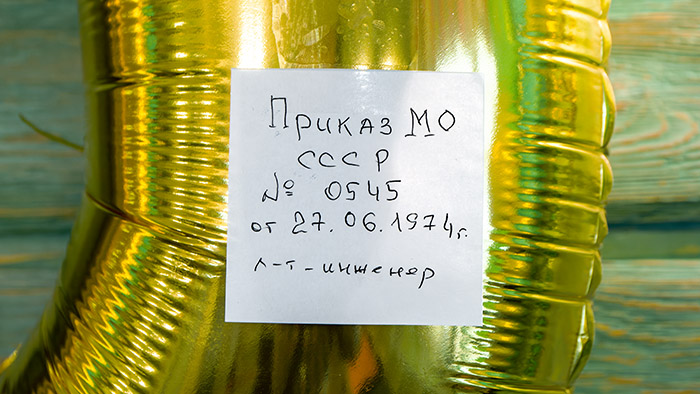 Приказ МО
СССР
№ 0545
от 27.06.1974г.
л-т-инженер